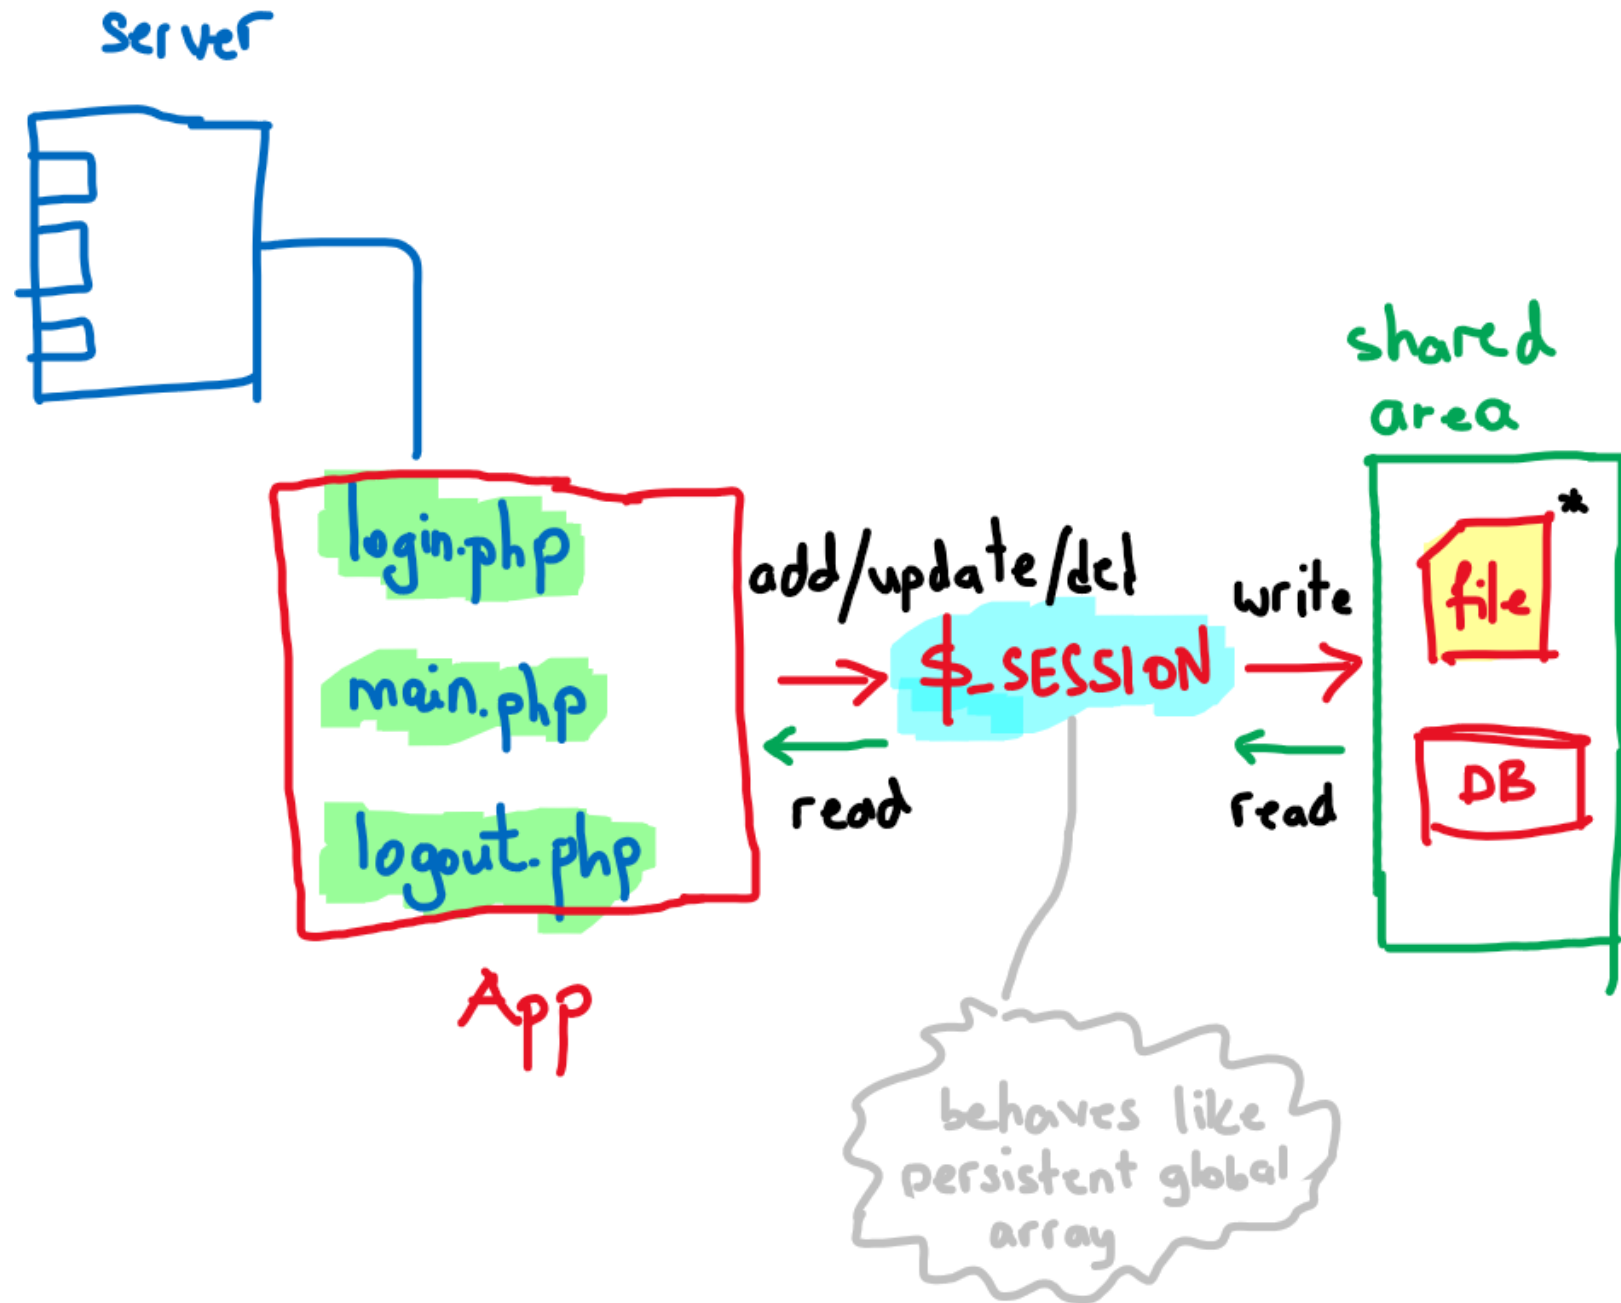 server
shared
area
login.php
main.php
logout.php
App
add/update/del
$_SESSION
read
write
read
file
*
DB
behaves like
persistent global
array